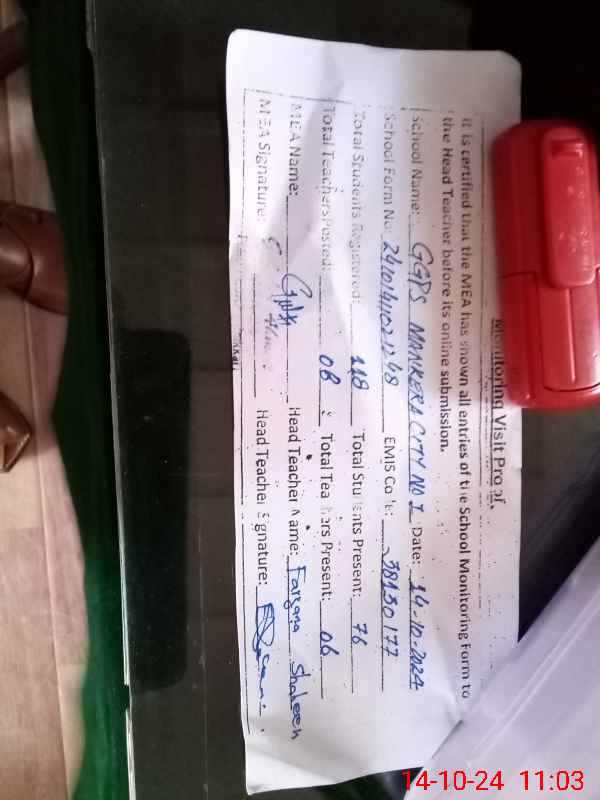 Monitoring Visit Proof.
It is certified that the MEA has shown all entries of the School Monitoring Form to
the Head Teacher before its online submission.
School Name: GGPS MANKERA CITY NO 1 Date: 14-10-2024
School Form No: EMIS Code: 38130177
Total Students Registered: 118 Total Students Present: 76
Total Teachers Posted: 08 Total Teachers Present: 06
MEA Name: Head Teacher Name: Farzana Shaheen
MEA Signature: Head Teacher Signature:
14-10-24 11:03